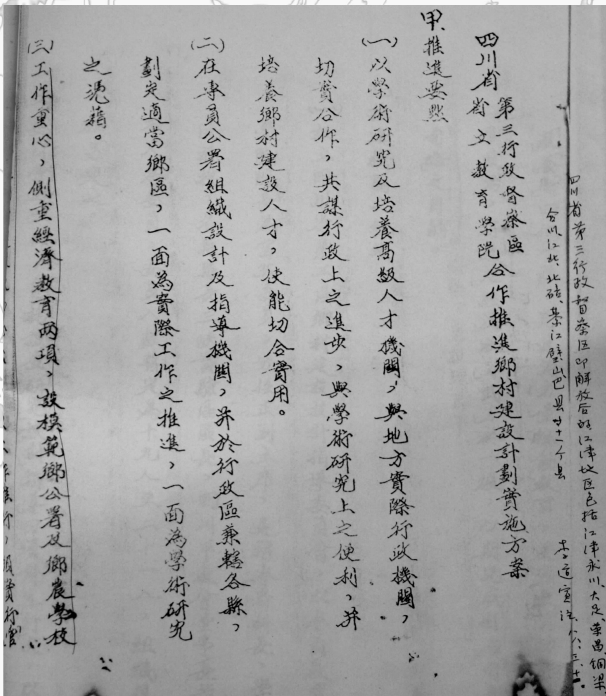 四川省第三行政督察区即解放后的江津地区包括江津永川大足、荣昌、铜梁
合川江北、北碚、綦江璧山巴县廿十一个县
李道宣注
四川省第三行政督察區
省立教育學院合作推進鄉村建設計劃實施方案
甲、推進要點
(一)以學術研究及培養高級人才機關,與地方實際行政機關,
切實合作,共謀行政上之進步,與學術研究上之便利,并
培養鄉村建設人才,使能切合實用。
(二)在專員公署組織設計及指導機關,并於行政區兼轄各縣,
劃定適當鄉區,一面為實際工作之推進,一面為學術研究
之憑藉。
(三)工作重心,側重經濟教育兩項,設模範鄉公署及鄉農學校